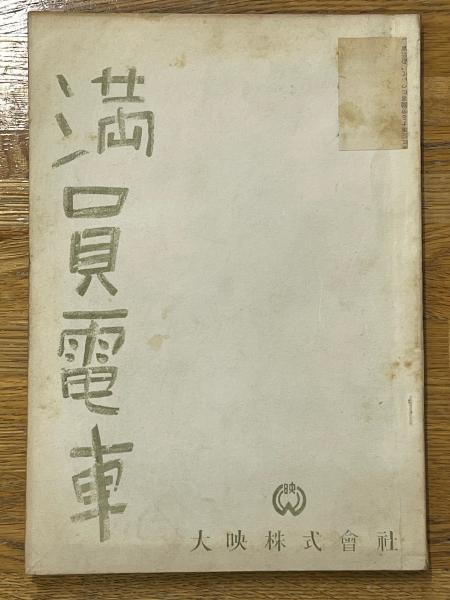 満員電車
映
大映株式會社